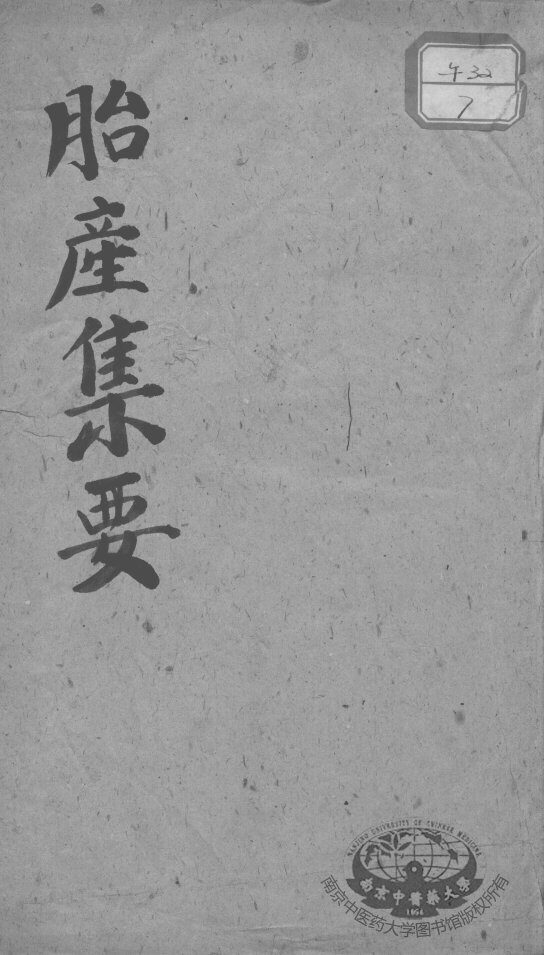 胎產集要
午32
7
NANJING UNIVERSITY OF CHINESE MEDICINE
南京中醫藥大学
1954
南京中医药大学图书馆版权所有